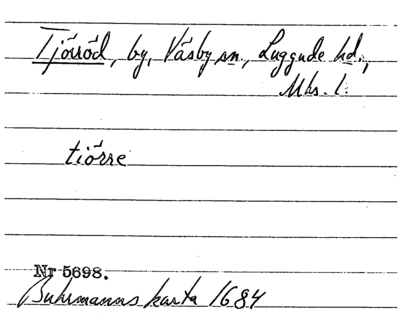 Tjörröd, by, Väsby sn, Luggude hd.,
Mhs. l.
tiörre
Nr 5698.
Buhrmanns karta 1684